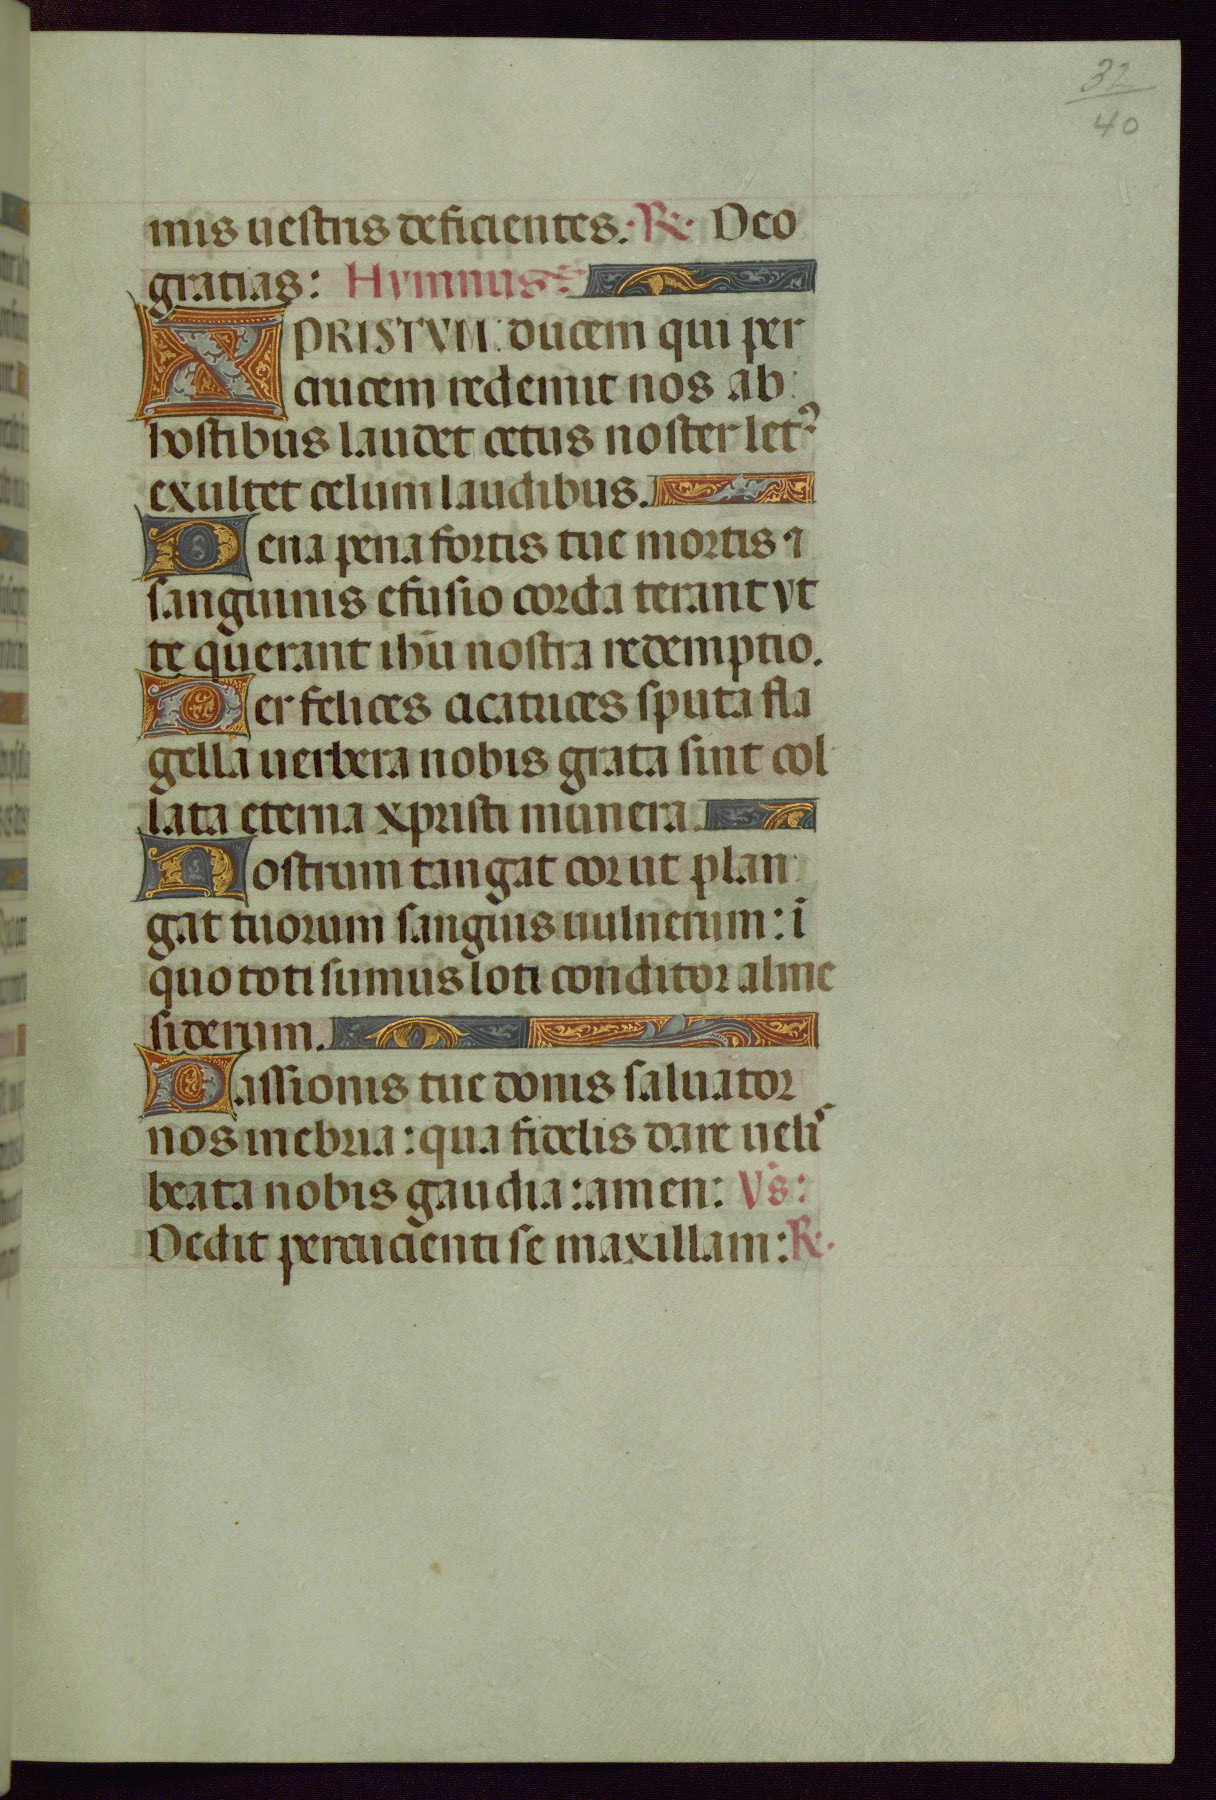 32
40
mis uestris deficientes. R. Deo
gratias: Hymnus
XPRISTVM ducem qui per
crucem redemit nos ab
hostibus laudet cetus noster letꝰ
exultet celum laudibus.
Pena pena fortis tue mortis ⁊
sanguinis efusio corda terant vt
te querant ihū nostra redemptio.
Per felices cicatrices sputa fla
gella uerbera nobis grata sint col
lata eterna xpristi munera.
Nostrum tangat cor ut plan
gat tuorum sanguis uulnerum: ī
quo toti sumus loti conditor alme
siderum.
Passionis tue donis saluator
nos inebria: qua fidelis dare uelis
beata nobis gaudia: amen: Vs:
Dedit percucienti se maxillam: R.